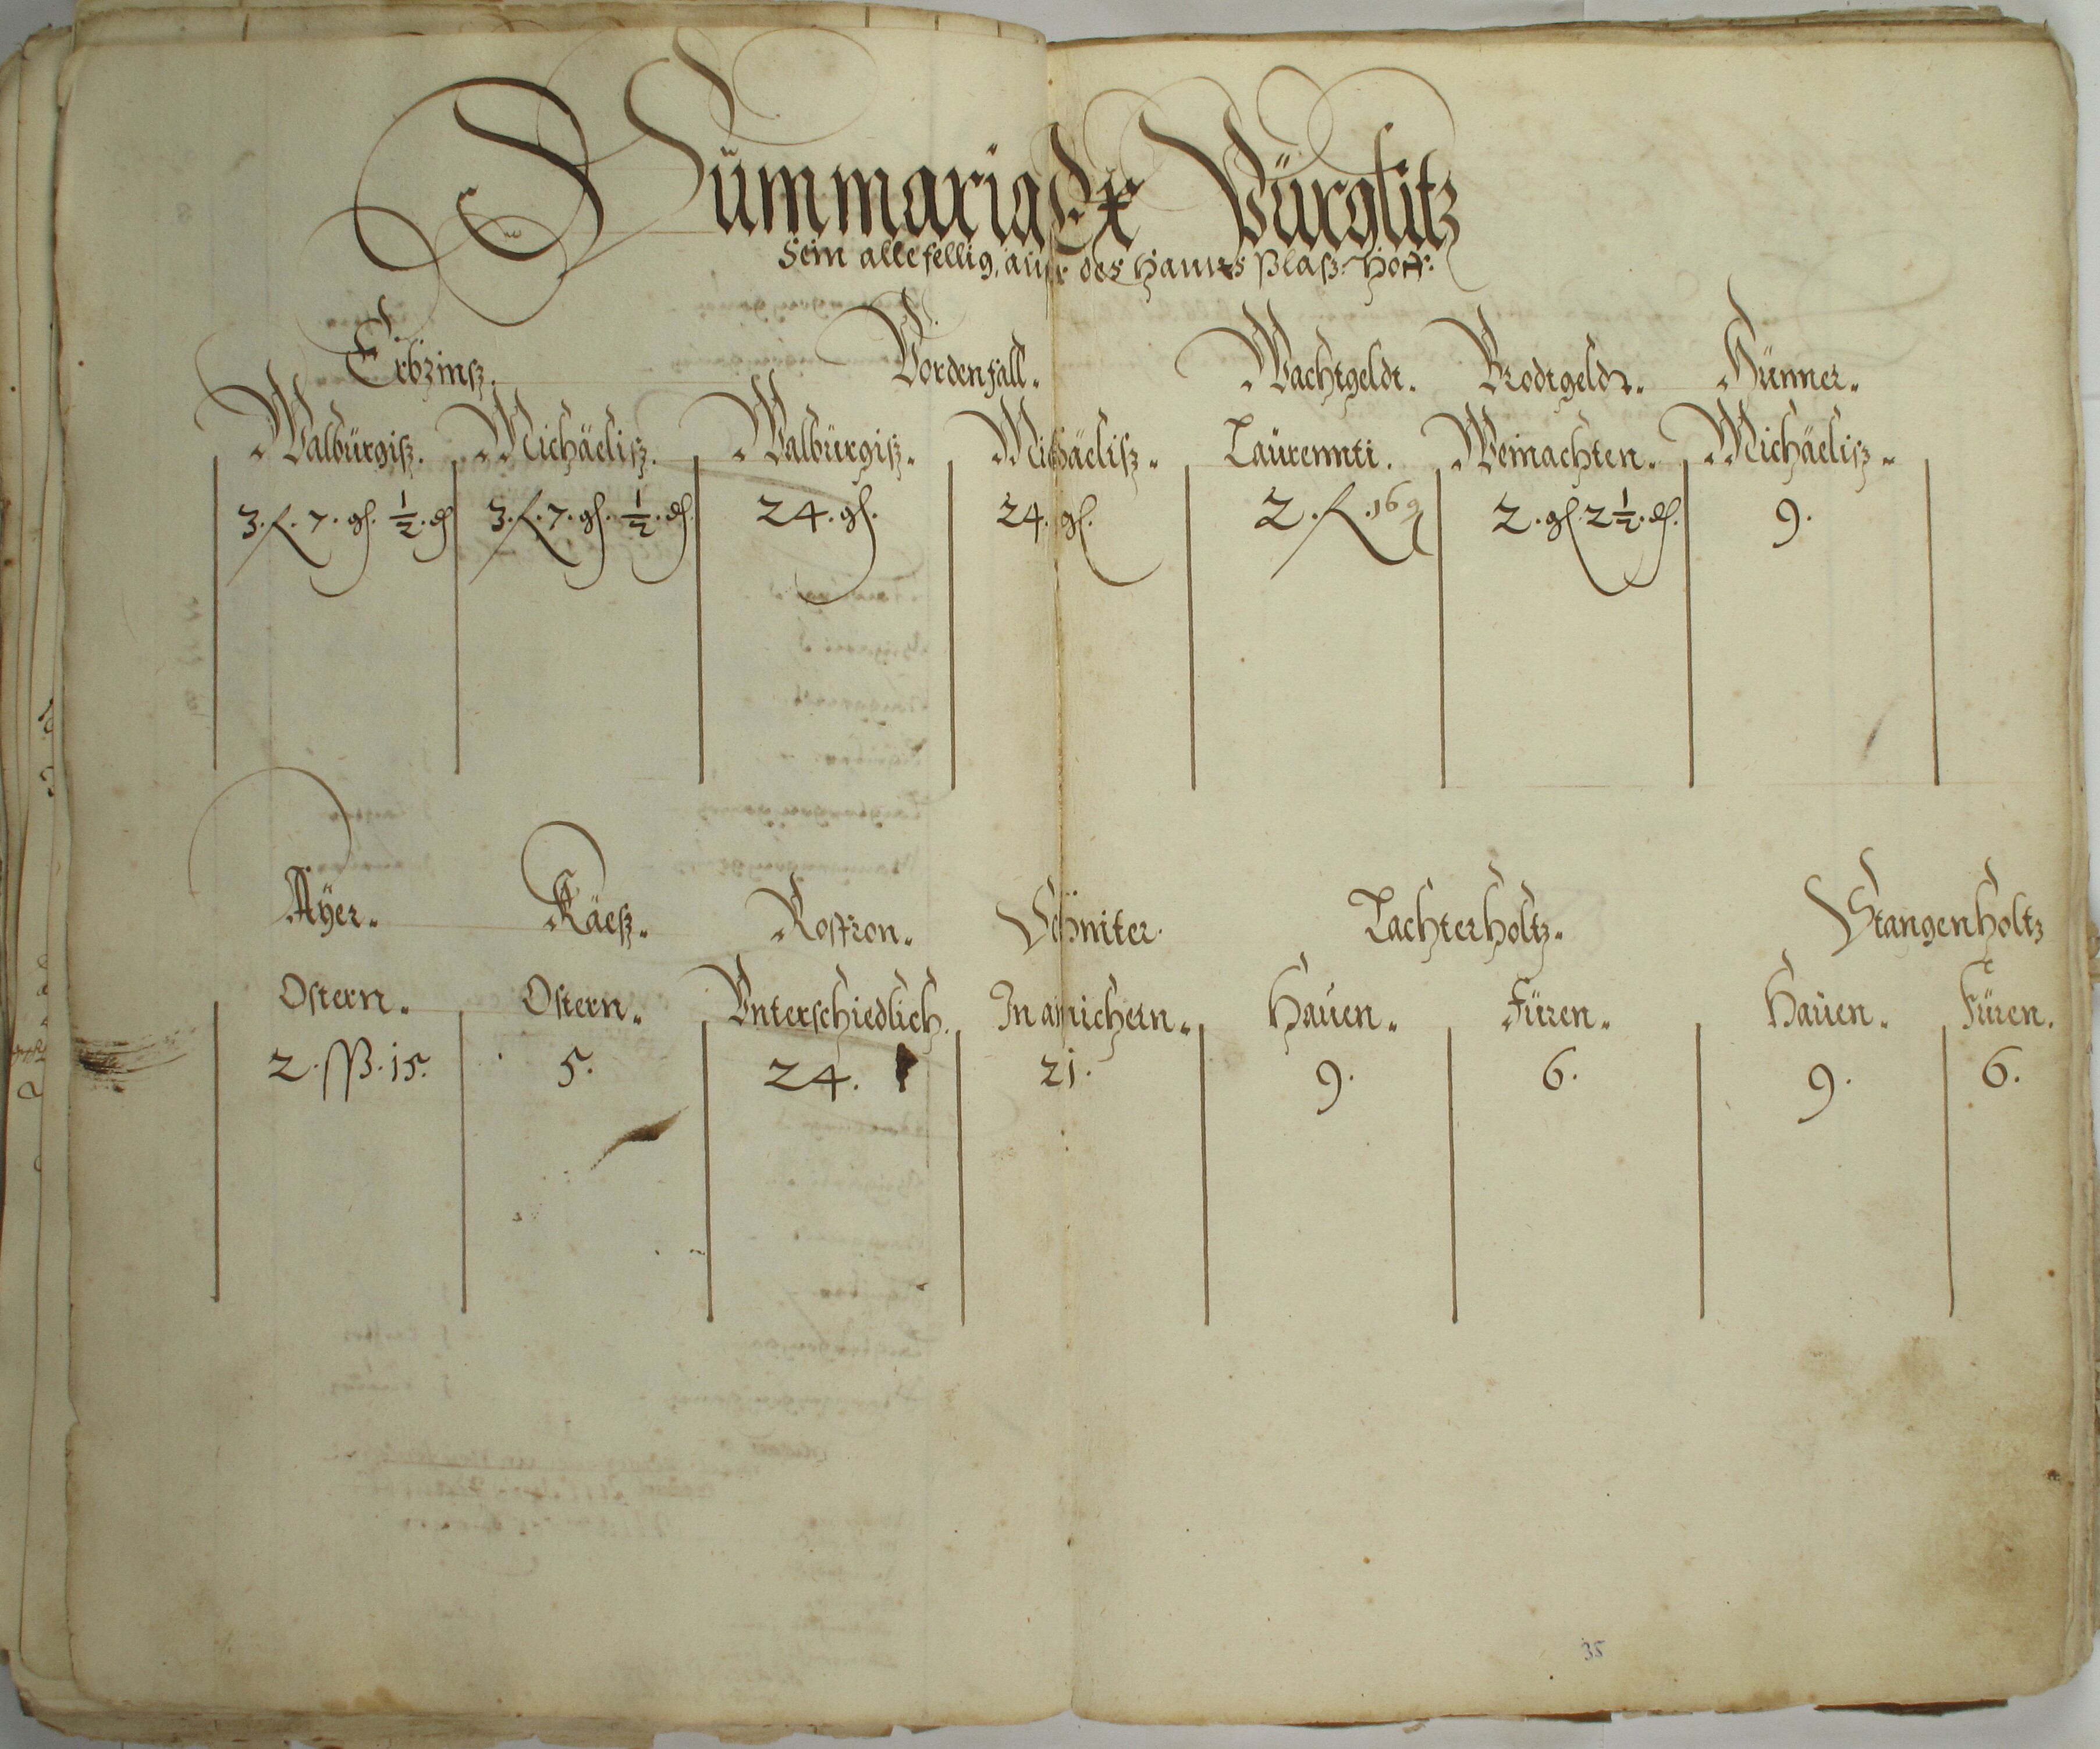 Summaria Ex Bürglitz
Sein alle fellig, auff des Hannß Blaß. Hoff.
Erbzinß. Vordenfall. Wachtgeldt. Brodtgeldt. Hünner.
Walbürgiß. Michäeliß. Walbürgiß. Michäeliß. Laürennti. Weinachten. Michäeliß.
3. fl. 7. gl. ½. dl 3. fl. 7. gl. ½. dl. 24. gl. 24. gl. 2. fl. 16 g 2. gl 2½. dl. 9.
Äÿer. Käeß. Schniter. Lachterholtz. Stangenholtz
Ostern. Ostern. Vnterschiedlich. Haüen. Füren. Haüen. Füren.
2. ßß. 15. 5. 24. 21. 9. 6. 9. 6.
35